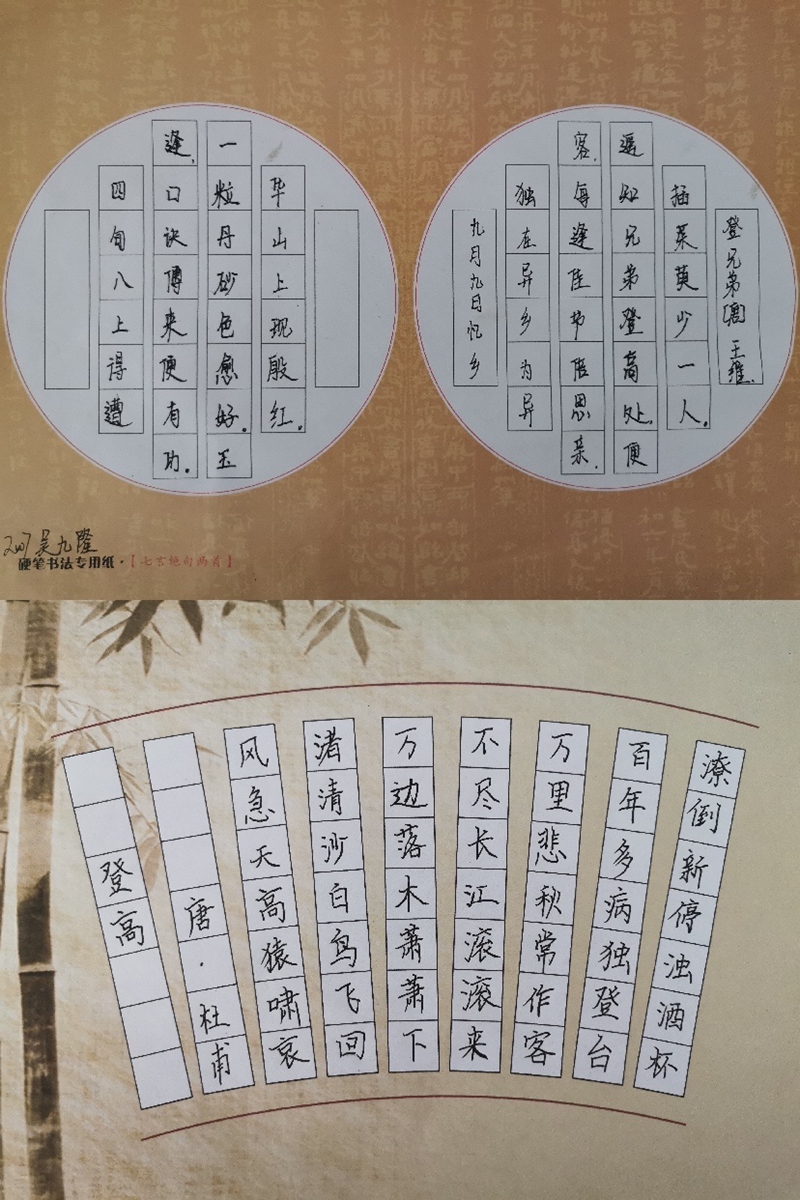 四旬八上得遭
逢,口诀傅来便有功。
一粒丹砂色愈好。玉
华山上现殷红。
九月九日忆乡
独在异乡为异
客,每逢佳节陪思亲.
遥知兄弟登高处,便
插茱萸少一人。
登兄弟[唐] 王維.
吴九隆
硬笔书法专用纸·【七言绝句两首】
登高
唐·杜甫
风急天高猿啸哀
渚清沙白鸟飞回
万边落木萧萧下
不尽长江滚滚来
万里悲秋常作客
百年多病独登台
潦倒新停浊酒杯